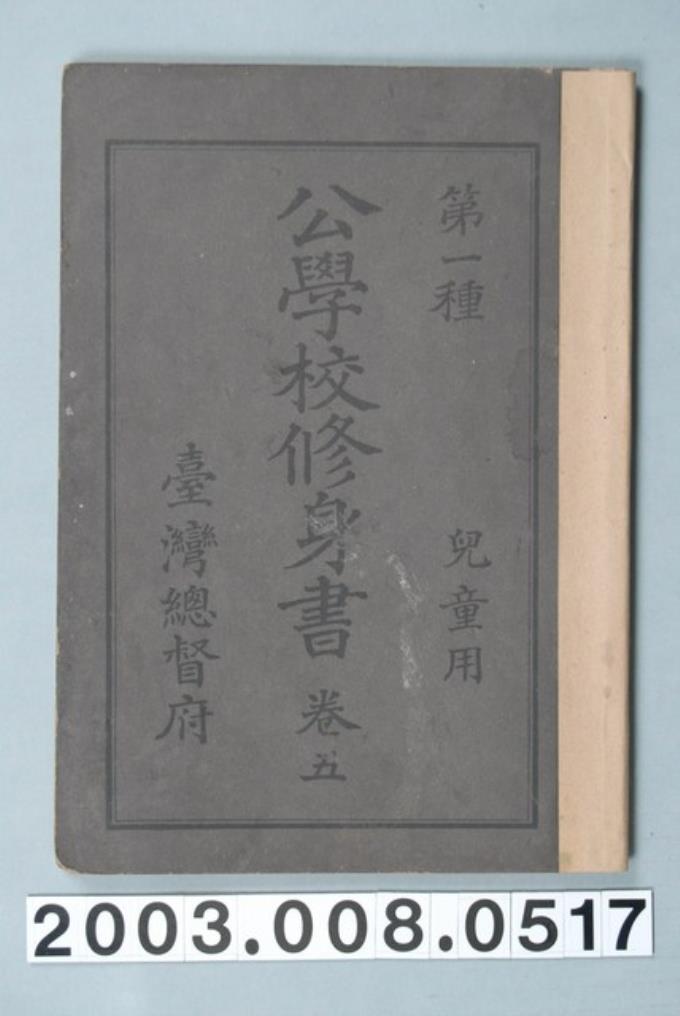 第一種 兒童用
公學校修身書 卷五
臺灣總督府
2003.008.0517